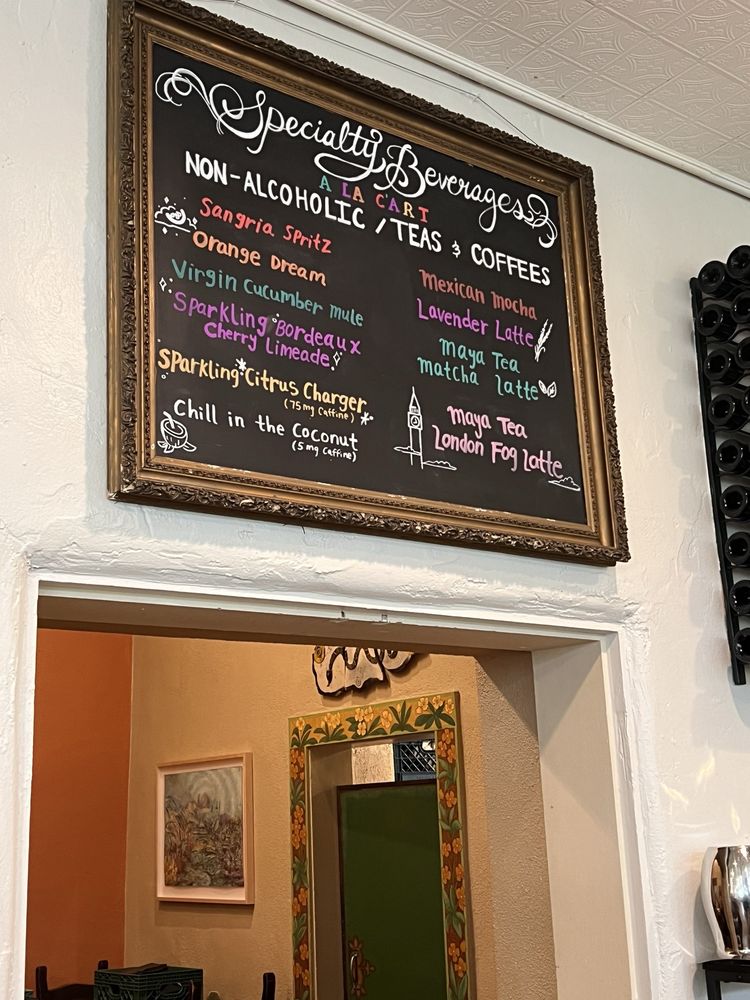 Specialty Beverages
A LA C'ART
NON-ALCOHOLIC / TEAS & COFFEES
Sangria Spritz
Orange Dream
Virgin Cucumber Mule
Sparkling Bordeaux
Cherry Limeade
Sparkling Citrus Charger
(75 mg Caffine)
Chill in the Coconut
(5 mg Caffine)
Mexican Mocha
Lavender Latte
Maya Tea
Matcha Latte
Maya Tea
London Fog Latte